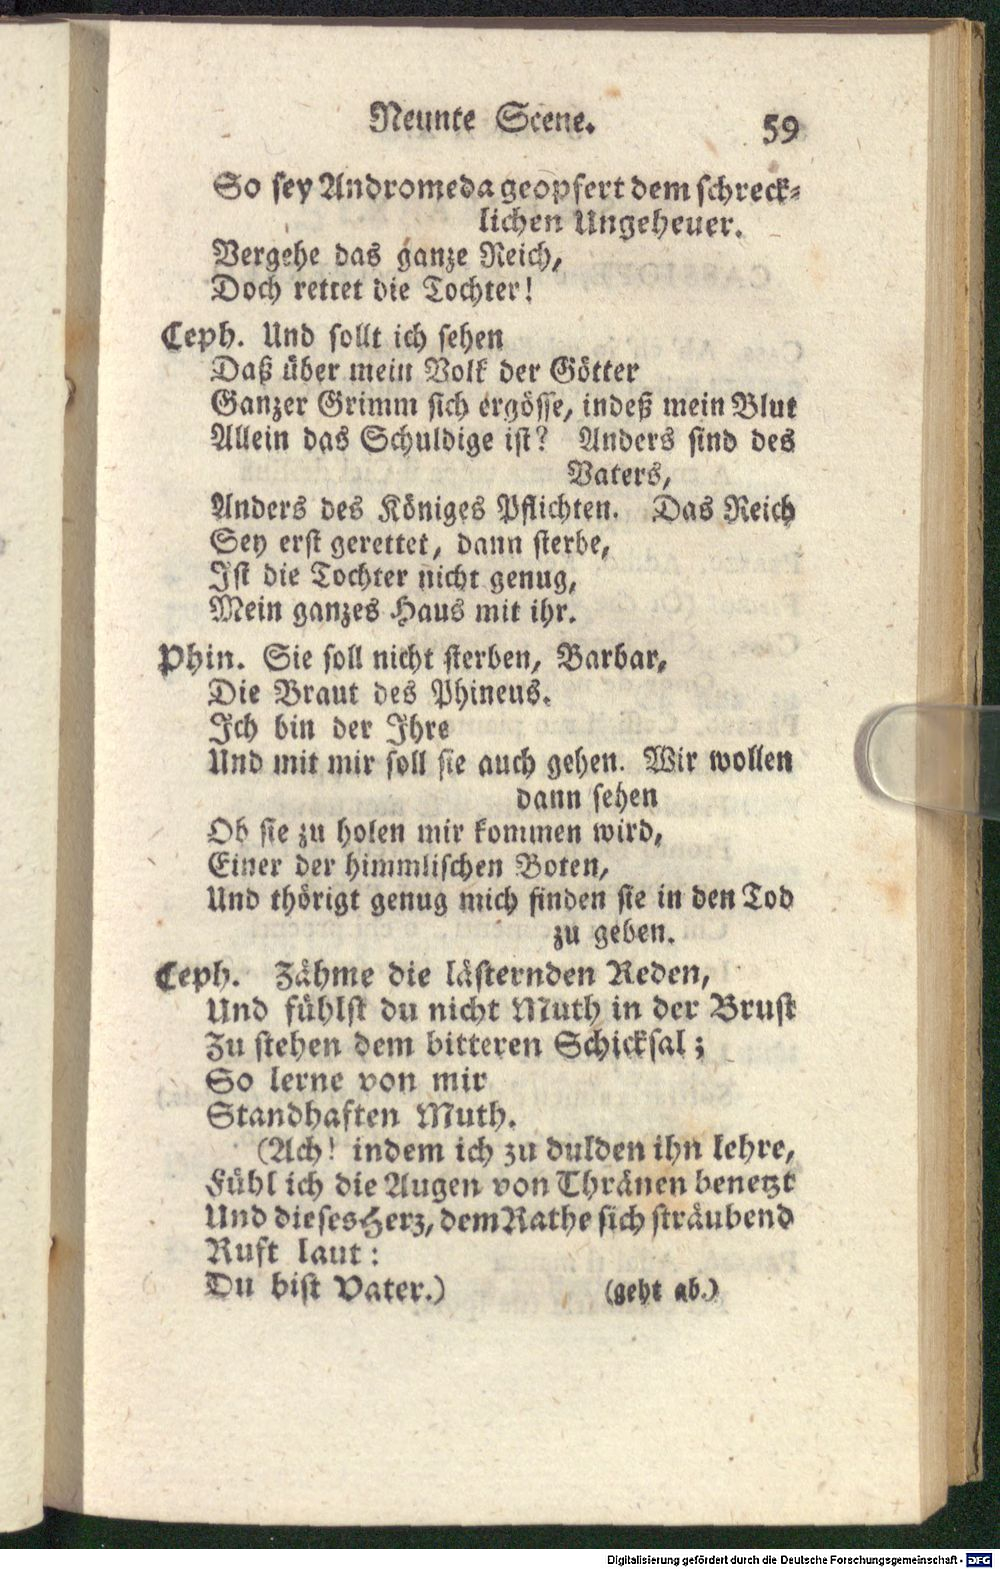 Neunte Scene. 59
So sey Andromeda geopfert dem schreck-
lichen Ungeheuer.
Vergehe das ganze Reich,
Doch rettet die Tochter!
Ceph. Und sollt ich sehen
Daß über mein Volk der Götter
Ganzer Grimm sich ergösse, indeß mein Blut
Allein das Schuldige ist? Anders sind des
Vaters,
Anders des Königes Pflichten. Das Reich
Sey erst gerettet, dann sterbe,
Ist die Tochter nicht genug,
Mein ganzes Haus mit ihr.
Phin. Sie soll nicht sterben, Barbar,
Die Braut des Phineus.
Ich bin der Ihre
Und mit mir soll sie auch gehen. Wir wollen
dann sehen
Ob sie zu holen mir kommen wird,
Einer der himmlischen Boten,
Und thörigt genug mich finden sie in den Tod
zu geben.
Ceph. Zähme die lästernden Reden,
Und fühlst du nicht Muth in der Brust
Zu stehen dem bitteren Schicksal;
So lerne von mir
Standhaften Muth.
(Ach! indem ich zu dulden ihn lehre,
Fühl ich die Augen von Thränen benetzt
Und dieses Herz, dem Rathe sich sträubend
Ruft laut:
Du bist Vater.) (geht ab.)
Digitalisierung gefördert durch die Deutsche Forschungsgemeinschaft - DFG